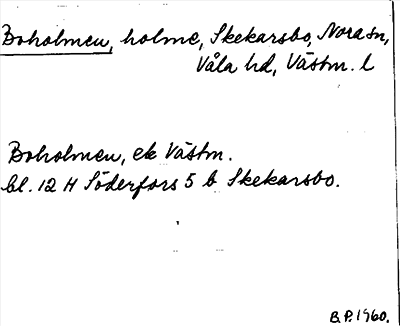 Boholmen, holme, Skekarsbo, Nora sn,
Våla hd, Västm. l
Boholmen, ek Västm.
bl. 12 H Söderfors 5 b Skekarsbo.
B.P. 1960.